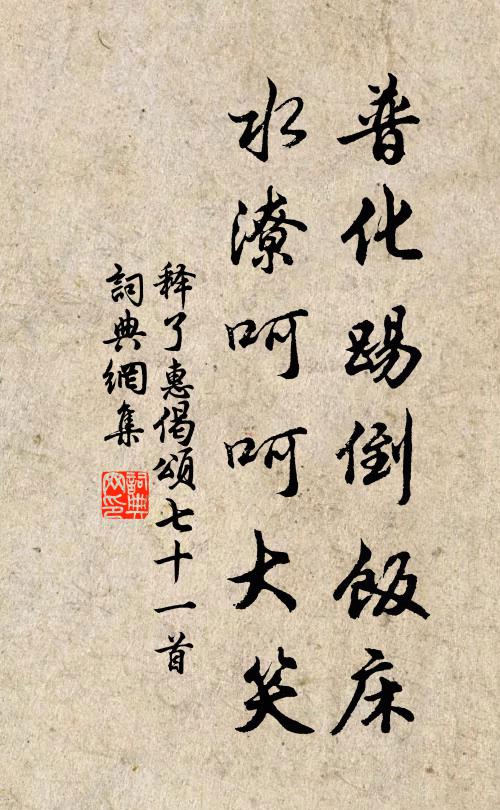 普化踢倒飯床
水潦呵呵大笑
释了惠偈頌七十一首
詞典網集
詞典
网印